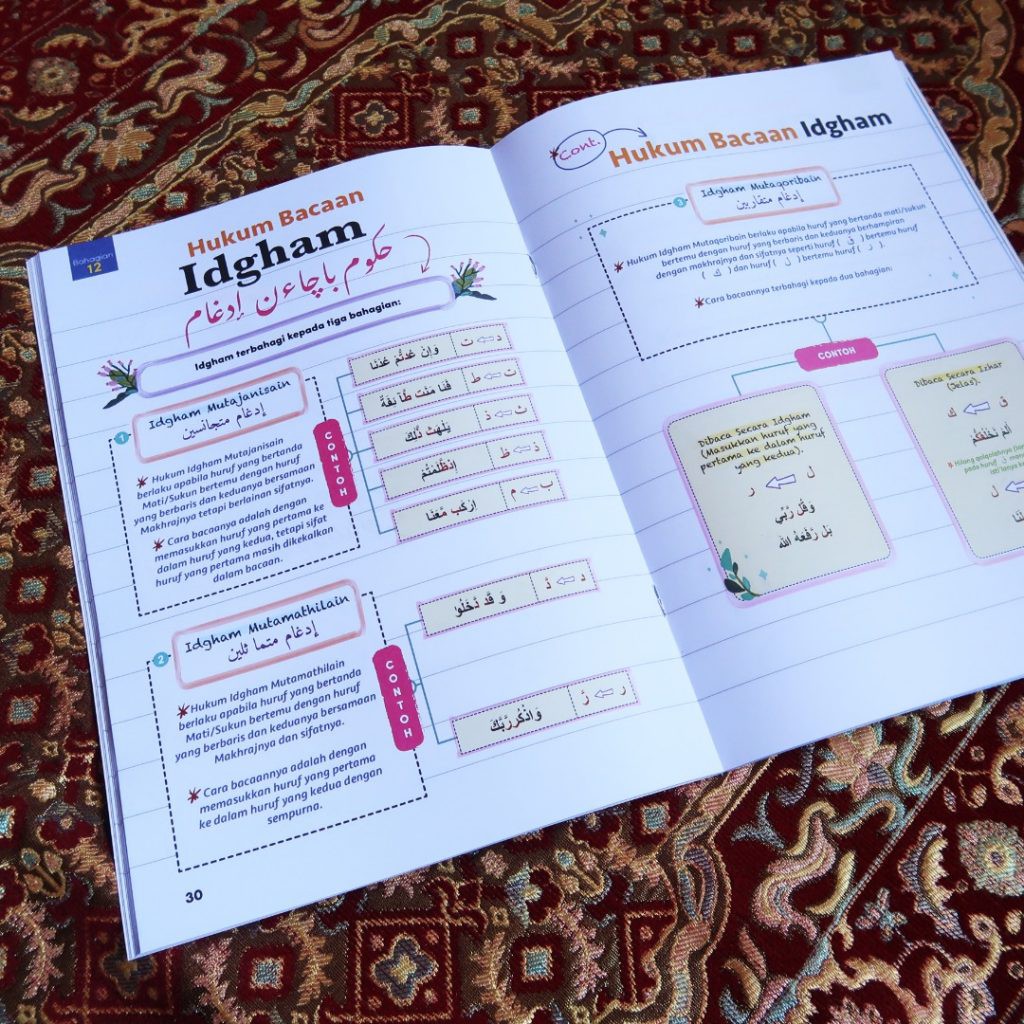 Bahagian
12
Hukum Bacaan
Idgham
حكوم باچاءن إدغام
Idgham terbahagi kepada tiga bahagian:
1
Idgham Mutajanisain
إدغام متجانسين
Hukum Idgham Mutajanisain
berlaku apabila huruf yang bertanda
Mati/Sukun bertemu dengan huruf
yang berbaris dan keduanya bersamaan
Makhrajnya tetapi berlainan sifatnya.
Cara bacaan adalah dengan
memasukkan huruf yang pertama ke
dalam huruf yang kedua, tetapi sifat
huruf yang pertama masih dikekalkan
dalam bacaan.
CONTOH
وَإِنْ عُدتُّمْ عُدْنَا
د ت
ت ط
يَلْهَث ذَّلِكَ
ث ذ
إِذظَّلَمْتُمْ
ذ ظ
ارْكَب مَّعَنَا
ب م
2
Idgham Mutamathilain
إدغام متما ثلين
Hukum Idgham Mutamathilain
berlaku apabila huruf yang bertanda
Mati/Sukun bertemu dengan huruf
yang berbaris dan keduanya bersamaan
Makhrajnya dan sifatnya.
Cara bacaannya adalah dengan
memasukkan huruf yang pertama
ke dalam huruf yang kedua dengan
sempurna.
CONTOH
وَ قَد دَّخَلُوا
د د
وَاذْكُررَّبَّكَ
ر ر
30
Cont.
Hukum Bacaan Idgham
3
Idgham Mutaqoribain
إدغام متقاربين
Hukum Idgham Mutaqoribain berlaku apabila huruf yang bertanda mati/sukun
bertemu dengan huruf yang berbaris dan keduanya berhampiran
dengan makhrajnya dan sifatnya seperti huruf ( ق ) bertemu huruf
( ك ) dan huruf ( ل ) bertemu huruf ( ر ).
Cara bacaannya terbahagi kepada dua bahagian:
CONTOH
Dibaca Secara Idgham
(Masukkan huruf yang
pertama ke dalam huruf
yang kedua).
ل ر
وَقُل رَّبِّي
بَل رَّفَعَهُ الله
Dibaca Secara Izhar
(Jelas).
ق ك
أَلَمْ نَخْلُقكُّم
Hilang qalqalahnya
pada huruf